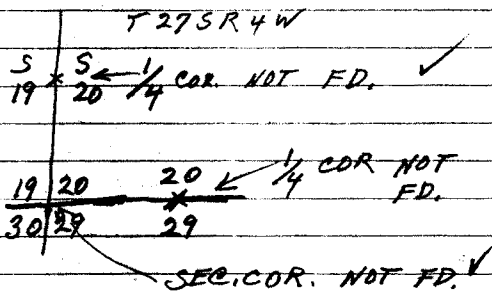 T27SR4W
S S
19 20 1/4 COR. NOT FD.
19 20 20 1/4 COR NOT
FD.
30 29 29
SEC. COR. NOT FD.